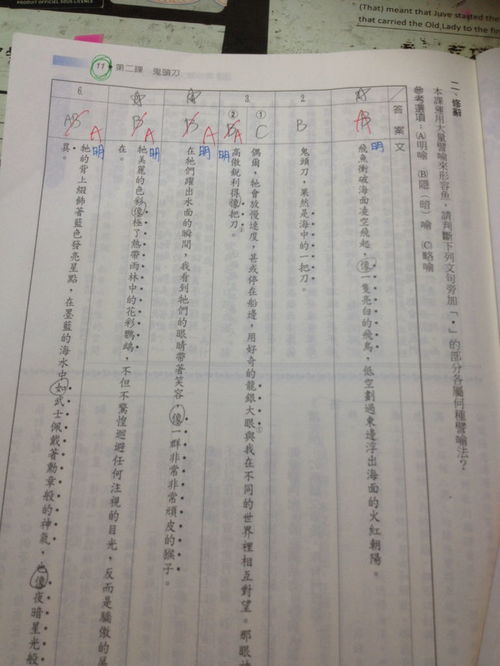 (That) meant that Juve started th
that carried the Old Lady to the fir
PRODUCT OFFICIEL SOUS LICENCE
11 第二課 鬼頭刀
二、修辭
本課運用大量譬喻來形容魚，請判斷下列文句旁加「．」的部分各屬何種譬喻法？
參考選項：(A)明喻 (B)隱（暗）喻 (C)略喻
答案 文
1. B A 明 飛魚衝破海面凌空飛起，像一隻亮白的飛鳥，低空劃過東邊浮出海面的火紅朝陽。
2. B 鬼頭刀，果然是海中的一把刀。
3. ① C 偶爾，牠會放慢速度，甚或停在船邊，用好奇的龍銀大眼①與我在不同的世界裡相互對望。那眼
② B A 明 高傲銳利得像把刀②。
4. B A 明 在牠們躍出水面的瞬間，我看到牠們的眼睛帶著笑容，像一群非常非常頑皮的猴子。
5. B A 明 牠美麗的色彩像極了熱帶雨林中的花彩鸚鵡，不但不驚惶迴避任何注視的目光，反而是驕傲的
在。
6. AB A 明 牠的背上綴飾著藍色發亮星點，在墨藍的海水中，如武士佩戴著勳章般的神氣，也像夜暗星光般
具。